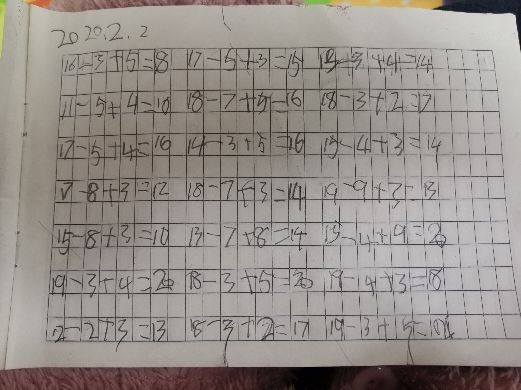 2020.2.2
16-3+5=18 17-5+3=15 13-3+4=14
11-5+4=10 18-7+5=16 18-3+2=17
17-5+4=16 14-3+5=16 15-4+3=14
17-8+3=12 18-7+3=14 19-9+3=13
15-8+3=10 13-7+8=14 15-4+9=20
19-3+4=20 18-3+5=20 19-4+3=18
12-2+3=13 18-3+2=17 19-3+5=